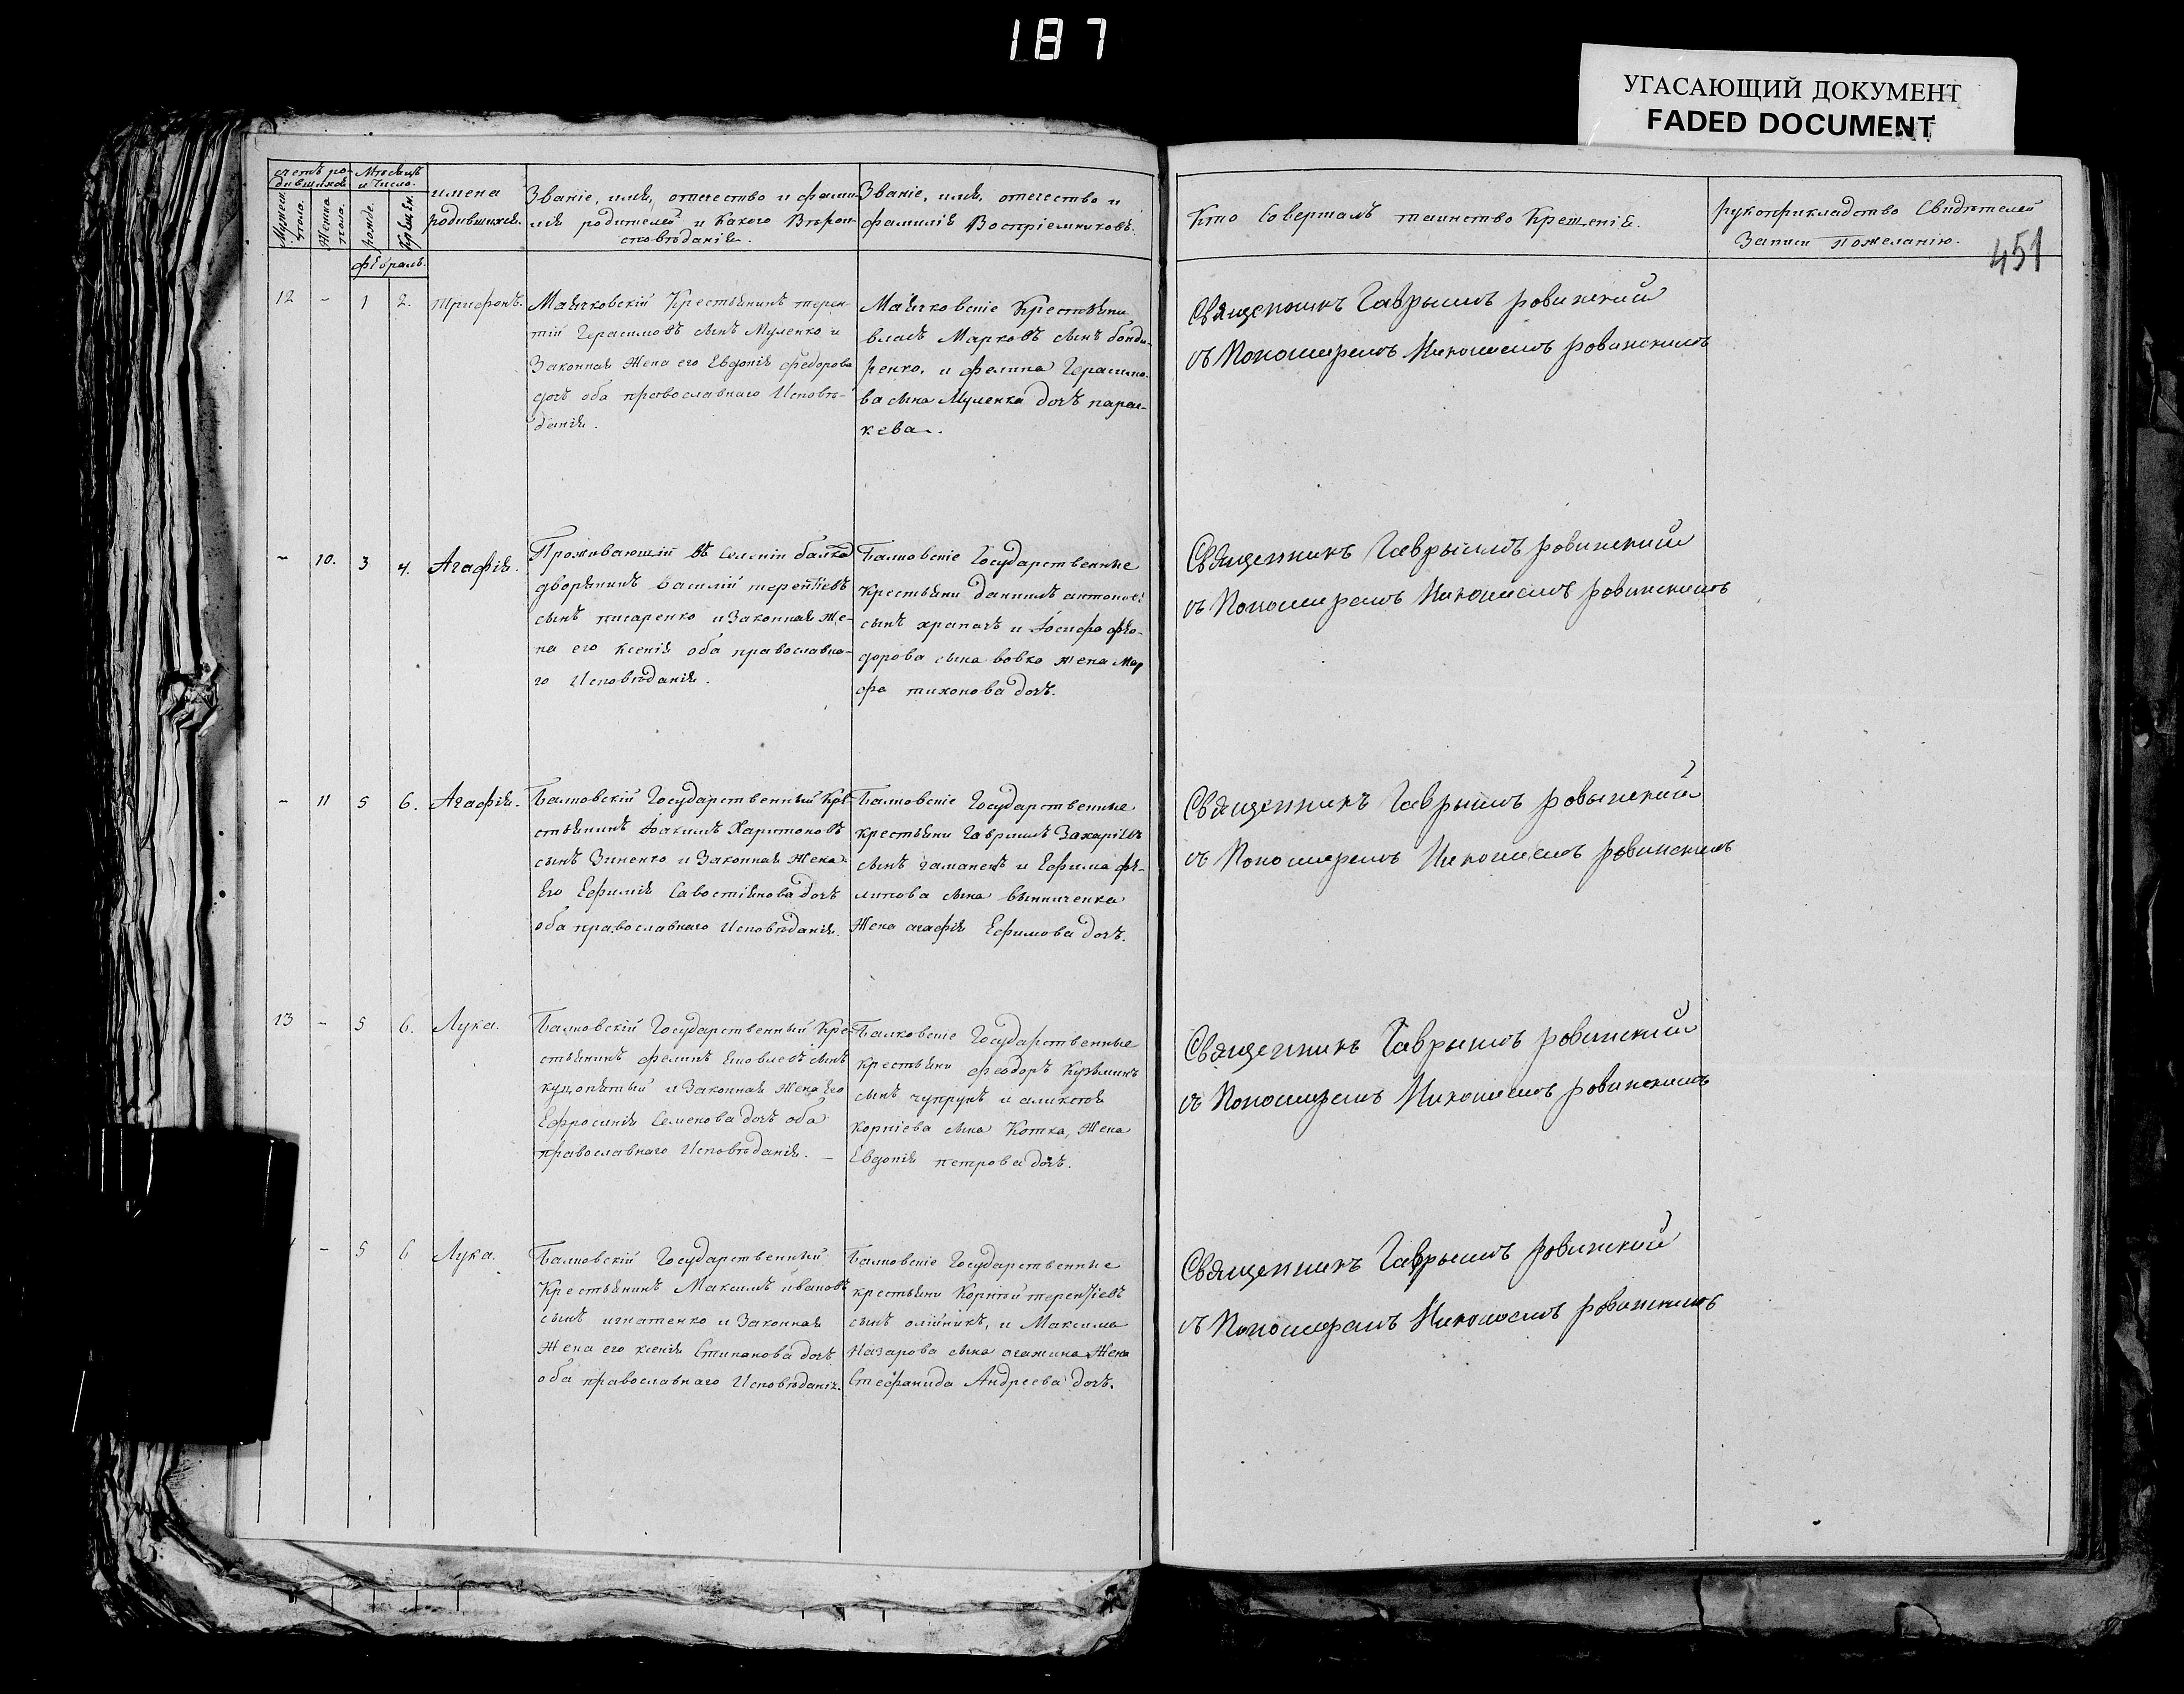 187
УГАСАЮЩИЙ ДОКУМЕНТ
FADED DOCUMENT
451
счетъ ро-
дившихся
Мужеск. пола.
Женска пола.
Мѣсяцъ
и число.
рожде.
крещен.
имена
родившихся.
Званіе, имя, отчество и фами-
лія родителей и какого вѣрои-
сповѣданія.
Званіе, имя, отчество и
фамилія Воспріемниковъ.
Кто Совершалъ таинство Крещенія.
рукоприкладство Свидѣтелей
Записи пожеланію.
февраль.
12 - 1 2. трифонъ.
Маячковскій Крестьянинъ терен-
тій Герасимовъ сынъ Муленко и
Законная Жена его Евдокія федорова
дочь оба православнаго Исповѣ-
данія.
Маячковскіе Крестьяни
власъ Марковъ сынъ бонда-
ренко, и фелипа Герасимо-
ва сына Муленка дочь парас-
кева.
Священникъ Гаврыилъ ровинский
съ Пономаремъ Николаемъ ровинскимъ
- 10. 3 4. Агафія.
Проживающій въ Селеніи балка
дворянинъ василій терентіевъ
сынъ писаренко и Законная Же-
на его ксенія оба православна-
го Исповѣданія.
Балковскіе Государственные
крестьяни данилъ антонов
сынъ храпачъ и Іосифа фео-
дорова сына вовко жена Мар
фа тихонова дочь.
Священникъ Гаврыилъ ровинский
съ Пономаремъ Николаемъ ровинскимъ
- 11 5 6. Агафія.
Балковскій Государственный Кре-
стьянинъ Іоакимъ Харитоновъ
сынъ Зиненко и Законная Жена
Его Ефимія Савостіянова дочь
оба православнаго Исповѣданія.
Балковскіе Государственные
крестьяни гавриилъ Захаріевъ
сынъ гаманецъ и Ефима фи-
липова сына винниченка
Жена агафія Ефимова дочь.
Священникъ Гаврыилъ ровынский
съ Пономаремъ Николаемъ ровинскимъ
13 - 5 6. Лука.
Балковскій Государственный Кре-
стьянинъ фелипъ Яковлевъ сынъ
куцопятый и Законная Жена Его
Ефросинія Семенова дочь оба
православнаго Исповѣданія.
Балковскіе Государственные
крестьяни феодоръ Кузьминъ
сынъ чупрунъ и
корніева сына Котка, Жена
Евдокія петрова дочь.
Священникъ Гаврыилъ ровинский
съ Пономаремъ Николаемъ ровинскимъ
- 5 6 Лука.
Балковскій Государственный
Крестьянинъ Максимъ ивановъ
сынъ игнатенко и Законная
Жена его ксенія Стипанова дочь
оба православнаго Исповѣданія.
Балковскіе Государственные
крестьяни Корнѣй терентіевъ
сынъ олійникъ, и Максима
Назарова сына Жена
Стефанида Андреева дочь.
Священникъ Гаврыилъ ровинский
съ Пономаремъ Николаемъ ровинскимъ